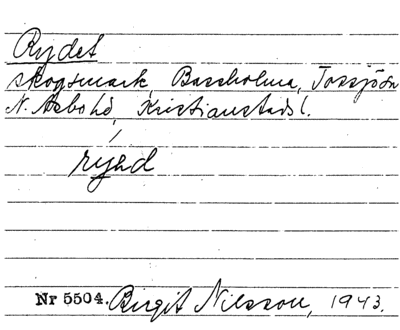 Rydet
skogsmark, Bassholma, Tossjön
N. Åsbo hd, Kristianstads l.
Nr 5504. Birgit Nilsson, 1943.